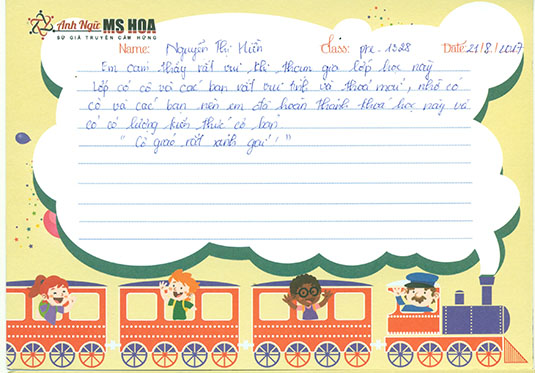 Anh Ngữ MS HOA
SỨ GIẢ TRUYỀN CẢM HỨNG
Name: Nguyễn Thị Hiền Class: pre - 1328 Date: 21/8/2017
Em cảm thấy rất vui khi tham gia lớp học này
Lớp có cô và các bạn rất vui tính và thoải mái, nhờ có
cô và các bạn nên em đã hoàn thành khoá học này và
có có lượng kiến thức cơ bản
"Cô giáo rất xinh gái!"